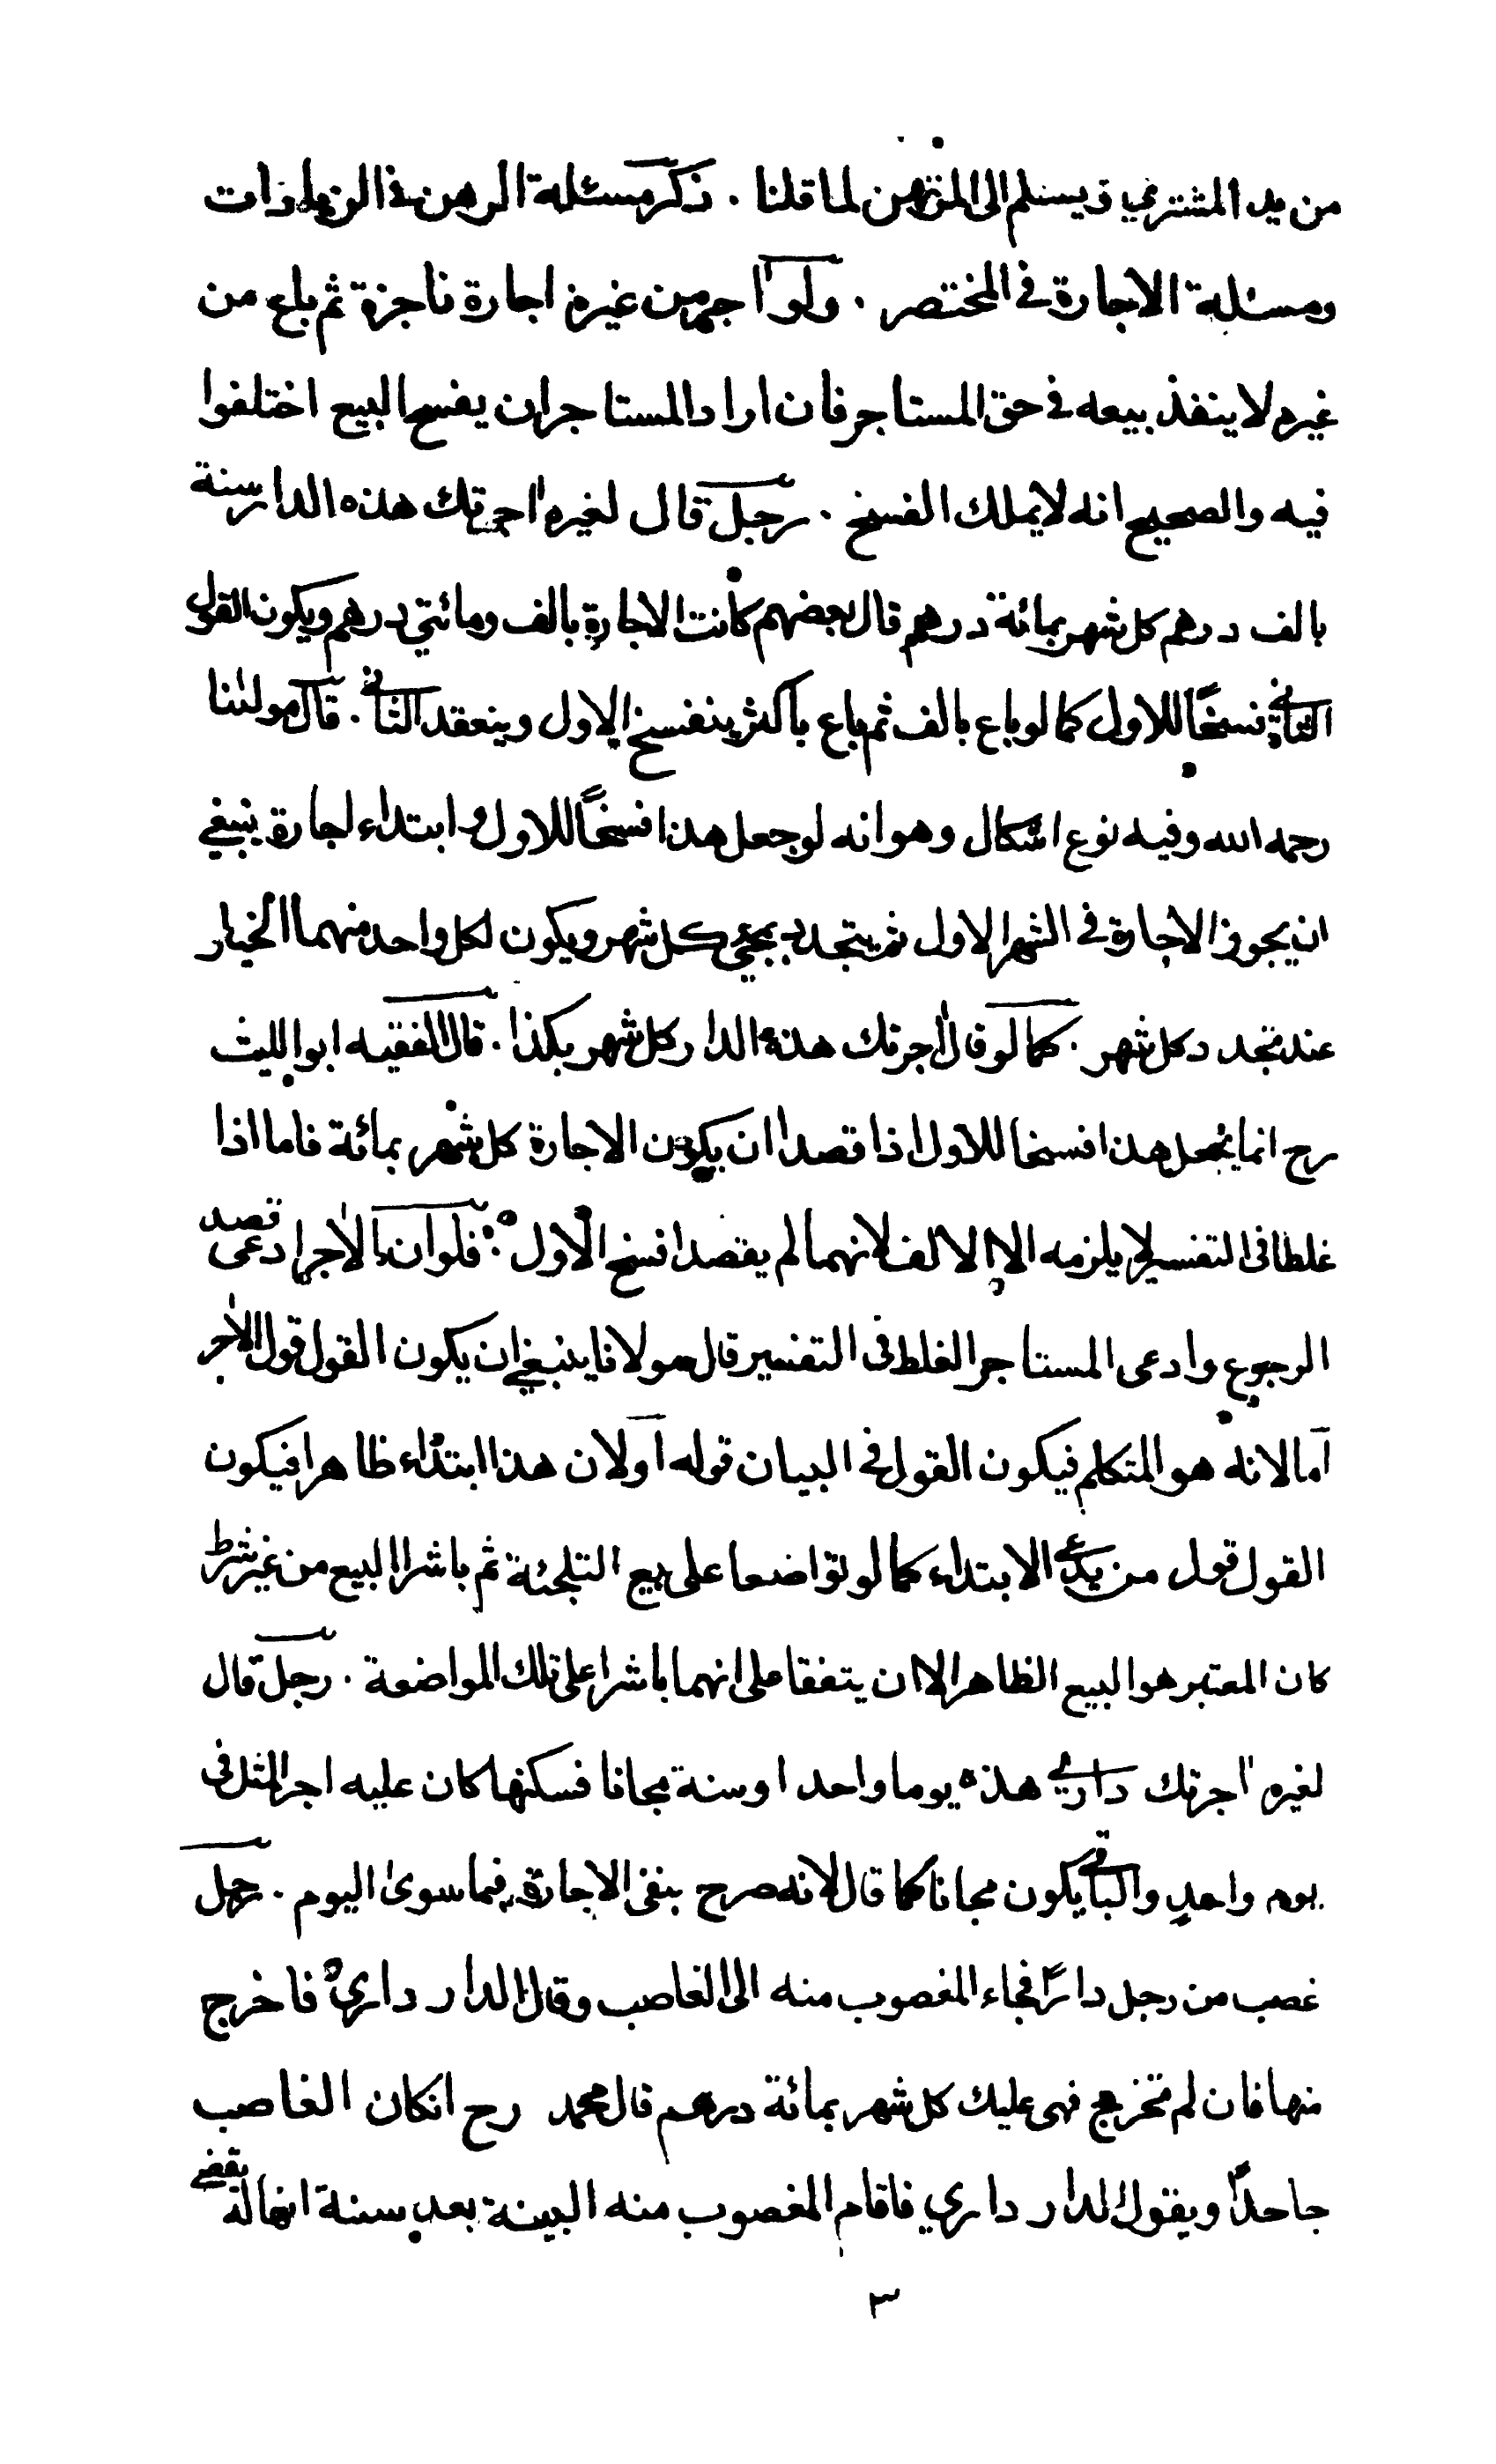 من يد المشتري ويسلم الى المرتهن لما قلنا . ذكر مسئلة الرهن في الزيادات
ومسئلة الاجارة في المختصر . ولو اٰجر من غيره اجارة ناجزة ثم باع من
غيره لا ينفذ بيعه في حق المستاجر فان اراد المستاجر ان يفسخ البيع اختلفوا
فيه والصحيح انه لا يملك الفسخ . رجل قال لغيره اٰجرتك هذه الدار سنة
بالف درهم كل شهر بمائة درهم قال بعضهم كانت الاجارة بالف ومائتي درهم ويكون القول
الثاني فسخًا للاول كما لو باع بالف ثم باع باكثر ينفسخ الاول وينعقد الثاني . قال مولٰنا
رحمه الله وفيه نوع اشكال وهو انه لو جعل هذا فسخًا للاول وابتداء اجارة ينبغي
ان يجوز الاجارة في الشهر الاول ثم يتجدد بمجيئ كل شهر ويكون لكل واحد منهما الخيار
عند تجدد كل شهر . كما لو قال اٰجرتك هذه الدار كل شهر بكذا . قال الفقيه ابو الليث
رح انما يجعل هذا فسخا للاول اذا قصدا ان يكون الاجارة كل شهر بمائة فاما اذا
غلطا فى التفسير لا يلزمه الا الالف لانهما لم يقصدا فسخ الاول . فلو ان الاٰجر ادعى قصد
الرجوع وادعى المستاجر الغلط فى التفسير قال مولانا ينبغي ان يكون القول قول الاٰجر
اما لانه هو المتكلم فيكون القول في البيان قوله او لان هذا ابتداء ظاهر افيكون
القول قول من يدعي الابتداء كما لو تواضعا على بيع التلجئة ثم باشرا البيع من غير شرط
كان المعتبر هو البيع الظاهر الا ان يتفقا على انهما باشرا على تلك المواضعة . رجل قال
لغيره اٰجرتك داري هذه يوما واحدا وسنة مجانا فسكنها كان عليه اجر المثل فى
يوم واحدٍ والباقي يكون مجانا كما قال لانه صرح بنفى الاجارة فيما سوىٰ اليوم . رجل
غصب من رجل دارًا فجاء المغصوب منه الى الغاصب وقال الدار داري فاخرج
منها فان لم تخرج فهى عليك كل شهر بمائة درهم قال محمد رح انكان الغاصب
جاحدًا ويقول الدار داري فاقام المغصوب منه البينة بعد سنة انها له يقضي
٣